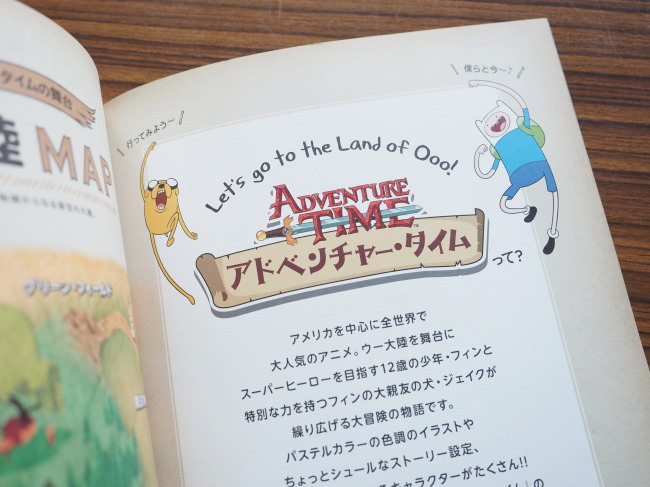 タイムの舞台
陸 MAP
グリーン・フィールド
行ってみよう〜
僕らと今〜♪
Let's go to the Land of Ooo!
ADVENTURE
TIME
アドベンチャー・タイム
って?
アメリカを中心に全世界で
大人気のアニメ。ウー大陸を舞台に
スーパーヒーローを目指す12歳の少年・フィンと
特別な力を持つフィンの大親友の犬・ジェイクが
繰り広げる大冒険の物語です。
パステルカラーの色調のイラストや
ちょっとシュールなストーリー設定、
キャラクターがたくさん!!